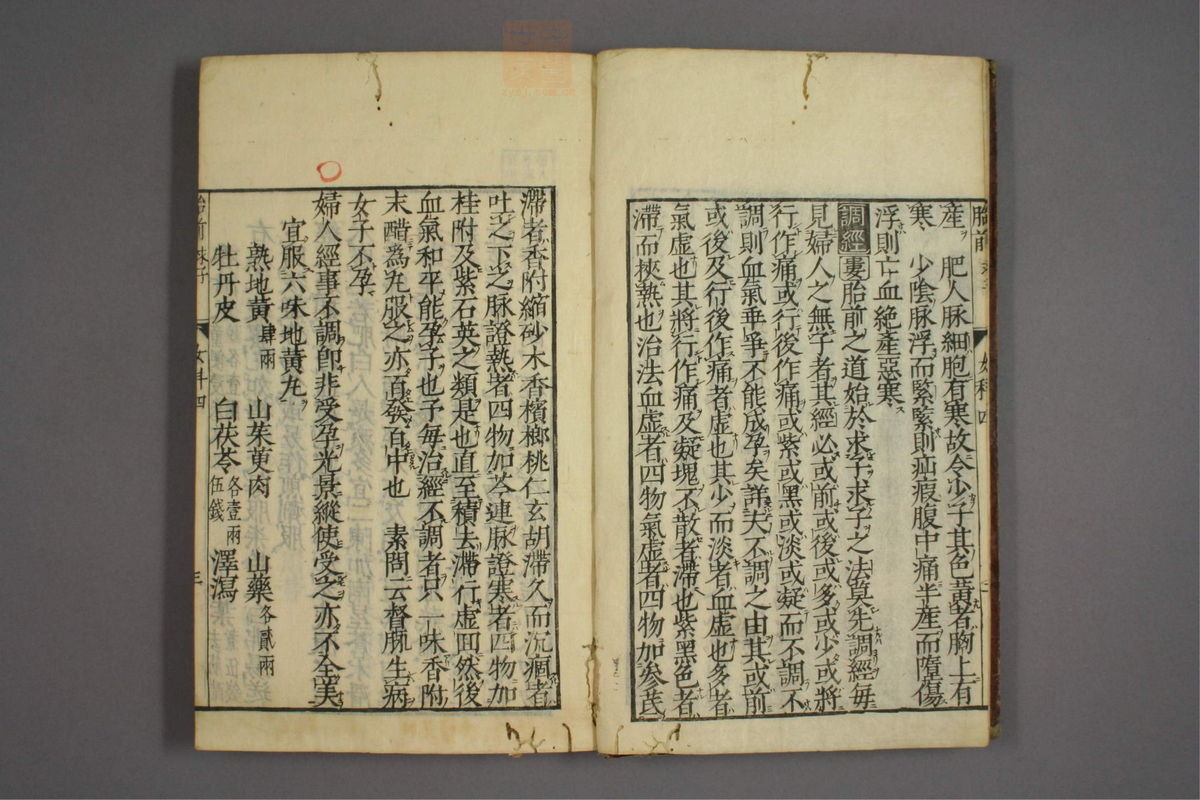 胎前
女科 四
産 肥人脉細胞有寒故令少子其色黑者胸上有
寒 少陰脉浮而緊緊則疝瘕腹中痛半産而墮傷
浮則亡血絶産惡寒
調經 婁胎前之道始於求子求子之法莫先調經毎
見婦人之無子者其經必或前或後或多或少或將
行作痛或行後作痛或紫或黑或淡或凝而不調不
調則血氣乖爭不能成孕矣詳夫不調之由其或前
或後及行後作痛者虚也其少而淡者血虚也多者
氣虚也其將行作痛及凝塊不散者滯也紫黑色者
滯而挾熱也治法血虚者四物氣虚者四物加參芪
滯者香附縮砂木香檳榔桃仁玄胡滯久而沉痼者
吐之下之脉證熱者四物加芩連脉證寒者四物加
桂附及紫石英之類是也直至積去滯行虚回然後
血氣和平能孕子也予毎治經不調者只一味香附
末醋爲丸服之亦百發百中也 素問云督脉生病
女子不孕
婦人經事不調卽非受孕光景縱使受之亦不全美
宜服六味地黄丸
熟地黄肆兩 山茱萸肉 山藥各貳兩
牡丹皮 白茯苓各壹兩伍錢 澤瀉
女科四
三